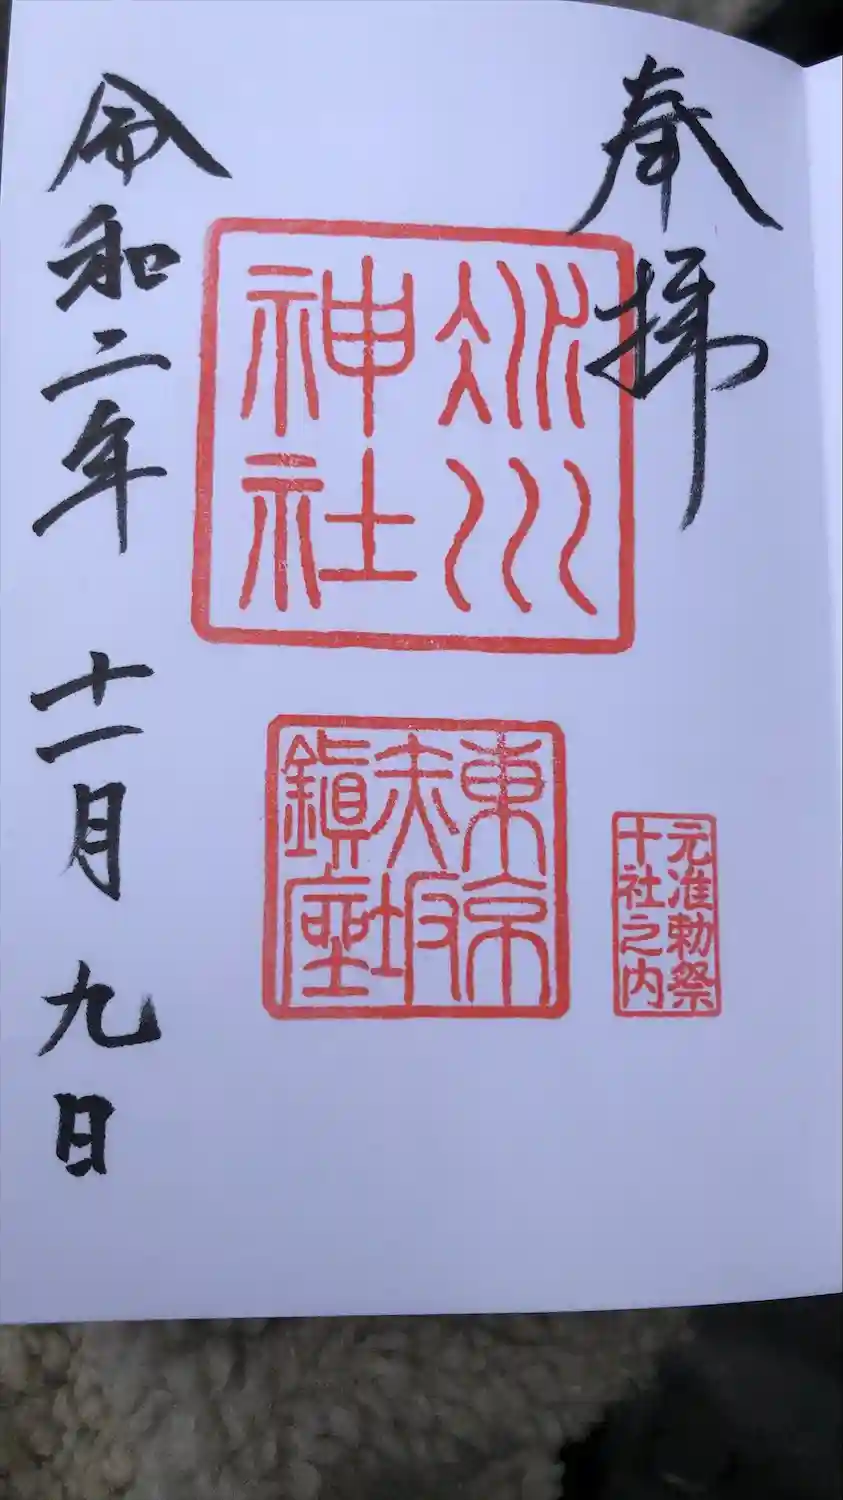 奉拝
氷川
神社
元准勅祭
十社之内
東京
赤坂
鎮座
令和二年 十一月 九日